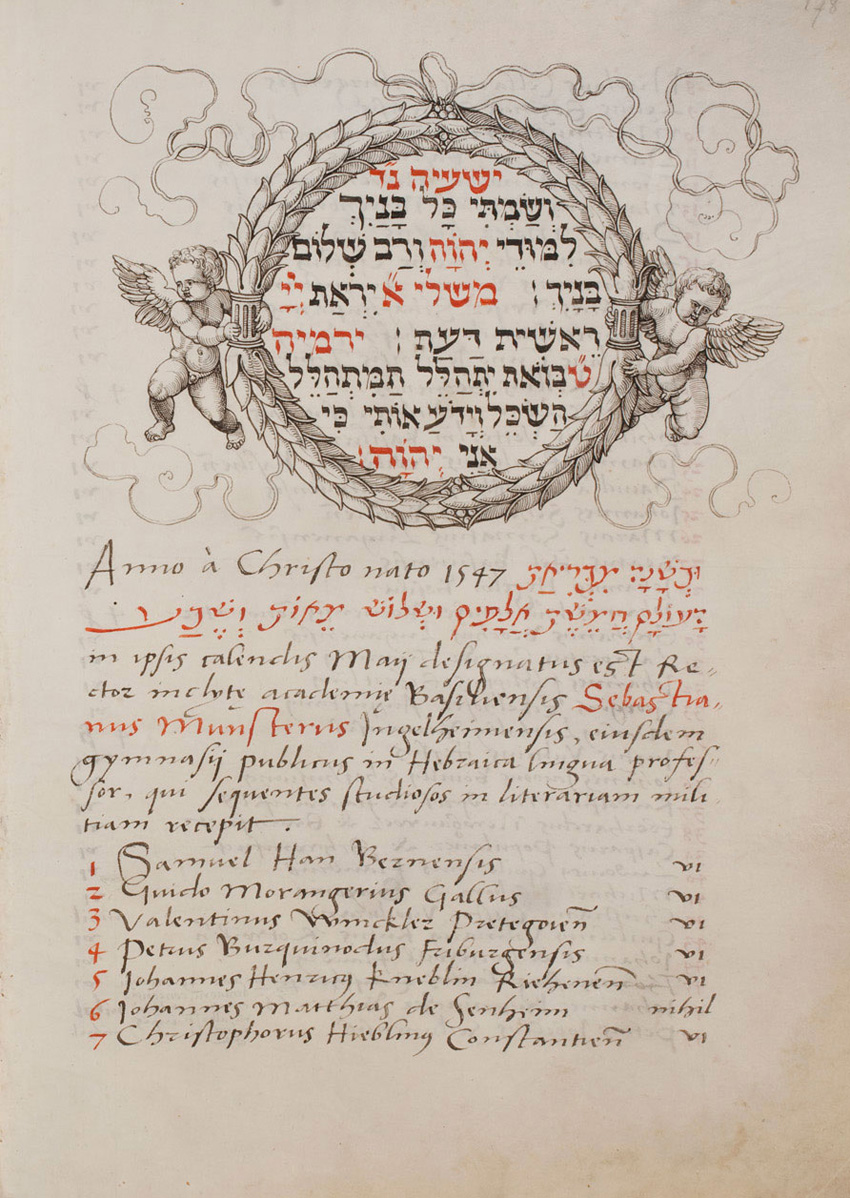 178
ישעיה נ״ד
וְשַׂמְתִּי כָּל בָּנַיִךְ
לִמּוּדֵי יְהוָֹה וְרַב שְׁלוֹם
בָּנָיִךְ׃ משלי א״ יִרְאַת יְיָ
רֵאשִׁית דַּעַת׃ ירמיה
ט״ בְּזֹאת יִתְהַלֵּל הַמִּתְהַלֵּל
הַשְׂכֵּל וְיָדֹעַ אוֹתִי כִּי
אֲנִי יְהוָֹה׃
Anno à Christo nato 1547 וּבְשָׁנָה מִבְּרִיאַת
הָעוֹלָם חֲמֵשֶׁת אֲלָפִים וּשְׁלוֹשׁ מֵאוֹת וְשֶׁבַע
in ipsis calendis Maij designatus est Re-
ctor inclytę academię Basiliensis Sebastia-
nus Munsterus Ingelheimensis, eiusdem
gymnasij publicus in Hebraica lingua profes-
sor, qui sequentes studiosos in literariam mili
tiam recepit.
1 Samuel Han Bernensis vi
2 Guido Morangerius Gallus vi
3 Valentinus Winckler Pretegoien̄ vi
4 Petrus Burquinodus Friburgensis vi
5 Iohannes Henricꝰ Kneblin Riehenen̄ vi
6 Iohannes Matthias de Senheim nihil
7 Christophorus Hieblinꝰ Constantien̄ vi